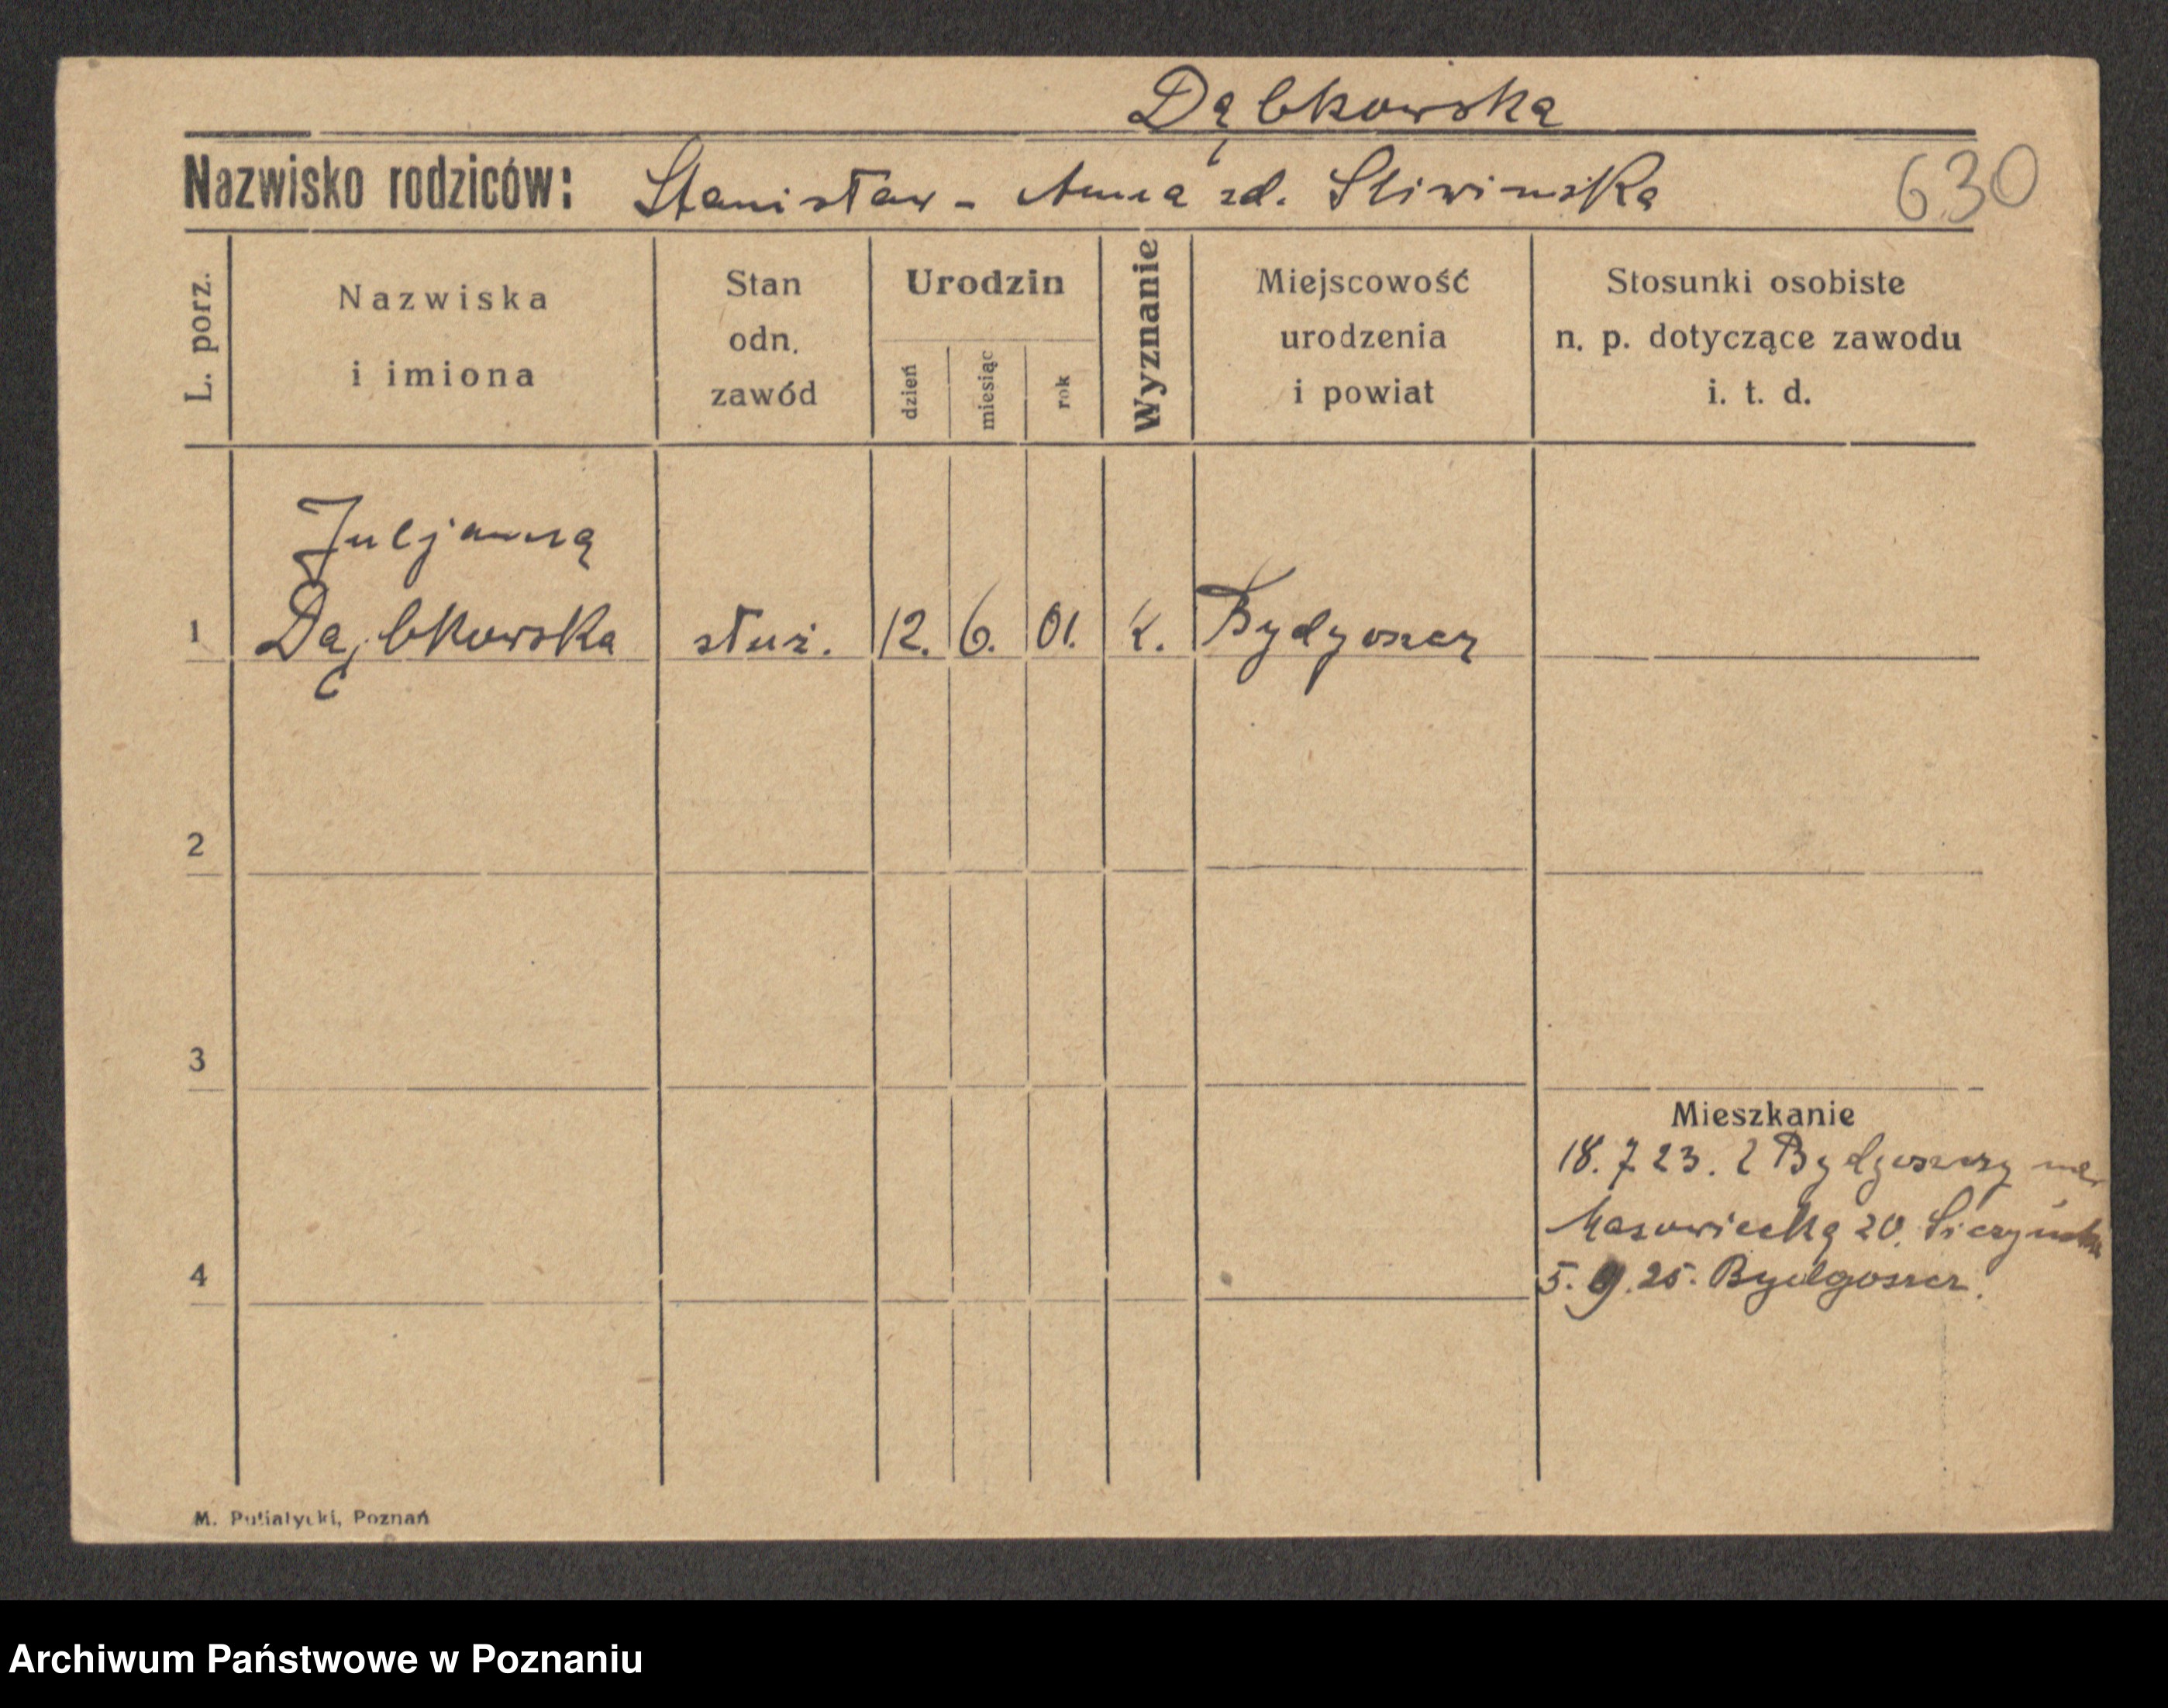 Dąbkowska
Nazwisko rodziców: Stanisław - Anna zd. Sliwinska
630
L. porz.
Nazwiska
i imiona
Stan
odn.
zawód
Urodzin
dzień
miesiąc
rok
Wyznanie
Miejscowość
urodzenia
i powiat
Stosunki osobiste
n. p. dotyczące zawodu
i. t. d.
Juljanna
1 Dąbkowska służ. 12. 6. 01. k. Bydgoszcz
2
3
Mieszkanie
18.7.23. z Bydgoszczy na
Mazowiecką 20.
4
5.9.25. Bydgoszcz.
M. Putiatycki, Poznań
Archiwum Państwowe w Poznaniu